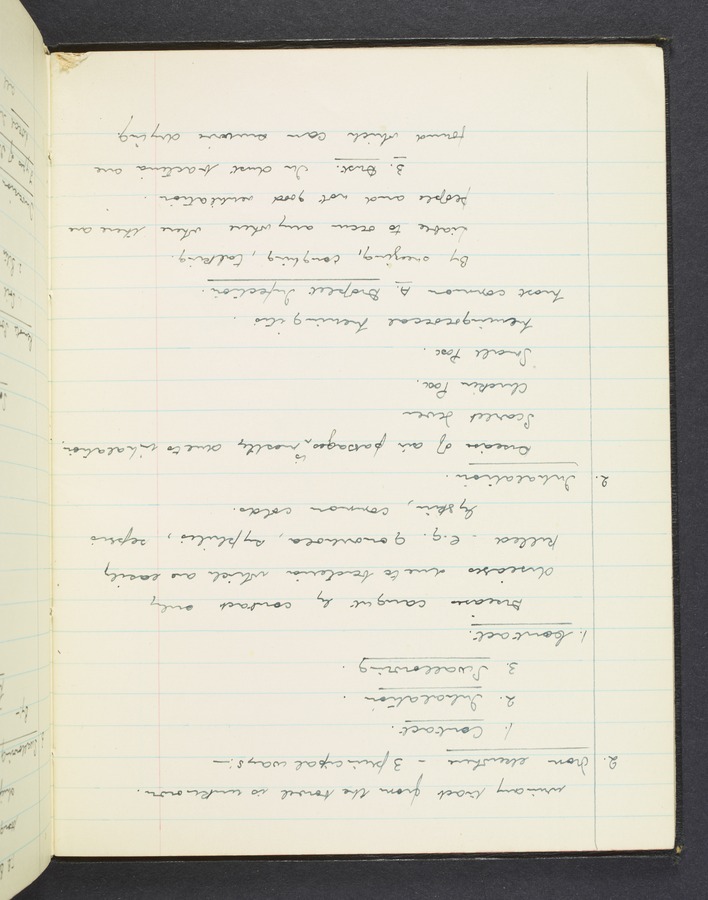 urinary tract from the bowel is unknown.
2. From elsewhere - 3 principal ways:-
1. Contact.
2. Inhalation.
3. Swallowing.
1. Contact:
Diseases caught by contact only
diseases due to bacteria which are easily
killed - e.g. gonorrhoea, syphilis, sepsis
by skin, common colds.
2. Inhalation.
Disease of air passages, is mostly due to inhalation.
Scarlet Fever
Chicken Pox.
Small Pox.
Meningococcal Meningitis.
Most common A. Droplet Infection.
By sneezing, coughing, talking.
Liable to occur anywhere where there are
people and not good ventilation.
3. Dust. In dust bacteria are
found which can survive drying